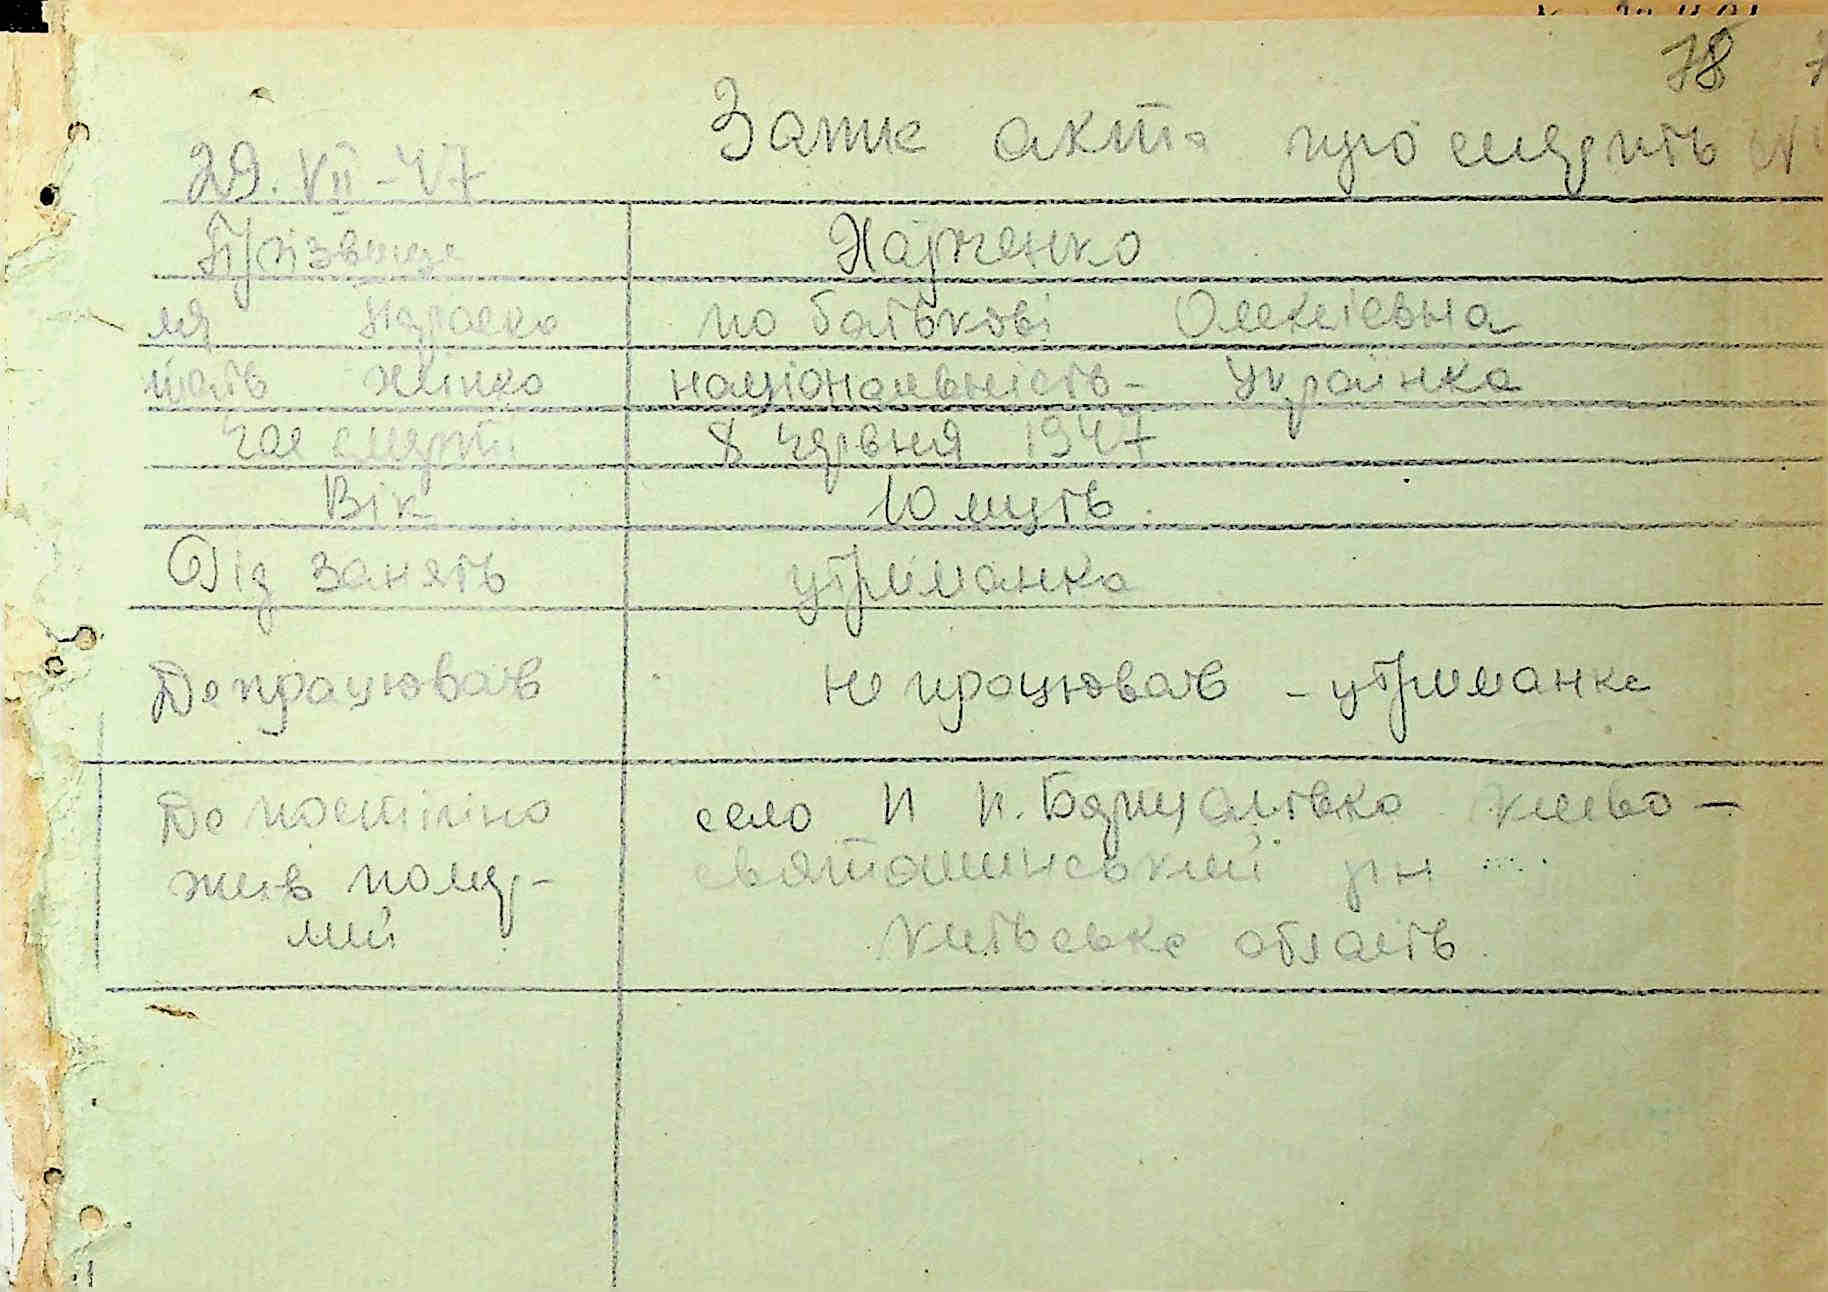 78
Запис акта про смерть №
29. VII - 47
Прізвище Харченко
мя по батькові Олексієвна
стать жінка національність - Українка
Час смерті 8 червня 1947
Вік 10 муть
Від занять утриманка
Де працював не працював - утриманка
Де постійно село П П. Борщагівка Києво -
жив помер- святошинський рн
лий Київська область.